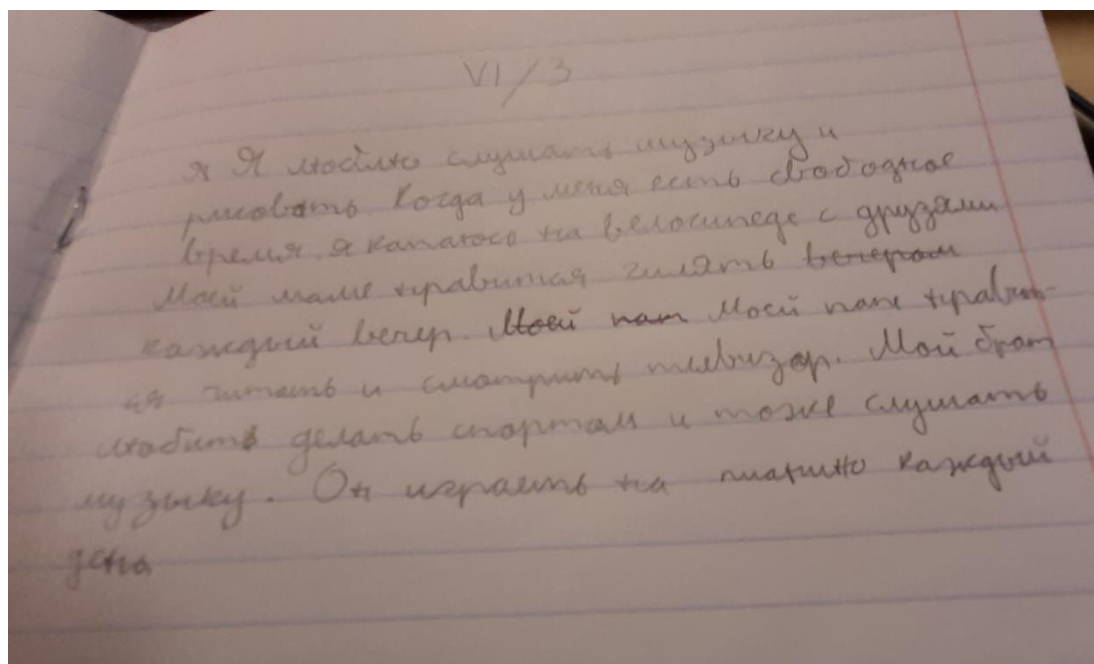 VI/3
я Я люблю слушать музыку и
рисовать. Когда у меня есть свободное
время, я катаюсь на велосипеде с друзями
Моей маме нравится гулять вечером
каждый вечер. Моей пап Моей папе нравит-
ся читать и смотрить телевизор. Мой брат
любить делать спортом и тоже слушать
музыку. Он играеть на пианино каждый
день